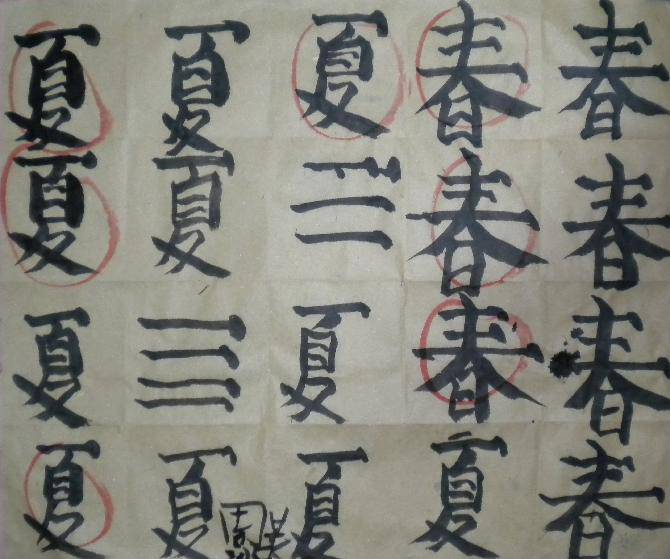 春春春春
春春春夏
夏夏夏
夏夏夏
夏夏夏夏
周